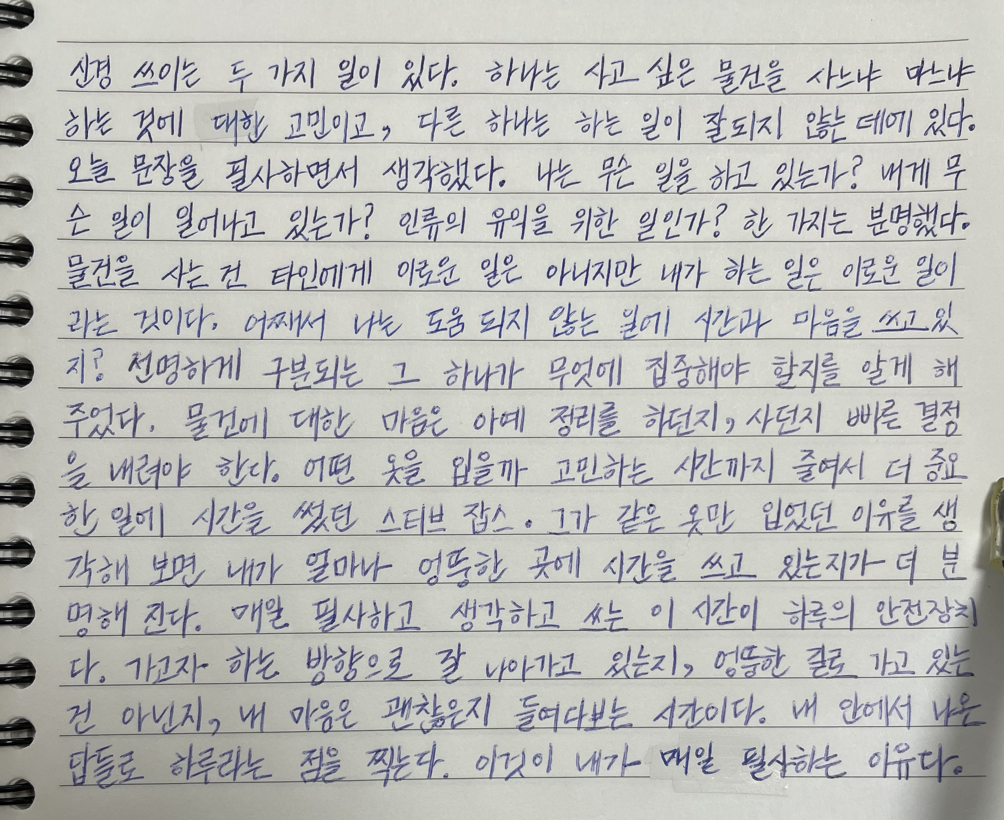 신경 쓰이는 두 가지 일이 있다. 하나는 사고 싶은 물건을 사느냐 마느냐
하는 것에 대한 고민이고, 다른 하나는 하는 일이 잘되지 않는 데에 있다.
오늘 문장을 필사하면서 생각했다. 나는 무슨 일을 하고 있는가? 내게 무
슨 일이 일어나고 있는가? 인류의 유익을 위한 일인가? 한 가지는 분명했다.
물건을 사는 건 타인에게 이로운 일은 아니지만 내가 하는 일은 이로운 일이
라는 것이다. 어째서 나는 도움 되지 않는 일에 시간과 마음을 쓰고 있
지? 선명하게 구분되는 그 하나가 무엇에 집중해야 할지를 알게 해
주었다. 물건에 대한 마음은 아예 정리를 하던지, 사던지 빠른 결정
을 내려야 한다. 어떤 옷을 입을까 고민하는 시간까지 줄여서 더 중요
한 일에 시간을 썼던 스티브 잡스. 그가 같은 옷만 입었던 이유를 생
각해 보면 내가 얼마나 엉뚱한 곳에 시간을 쓰고 있는지가 더 분
명해 진다. 매일 필사하고 생각하고 쓰는 이 시간이 하루의 안전장치
다. 가고자 하는 방향으로 잘 나아가고 있는지, 엉뚱한 길로 가고 있는
건 아닌지, 내 마음은 괜찮은지 들여다보는 시간이다. 내 안에서 나온
답들로 하루라는 점을 찍는다. 이것이 내가 매일 필사하는 이유다.